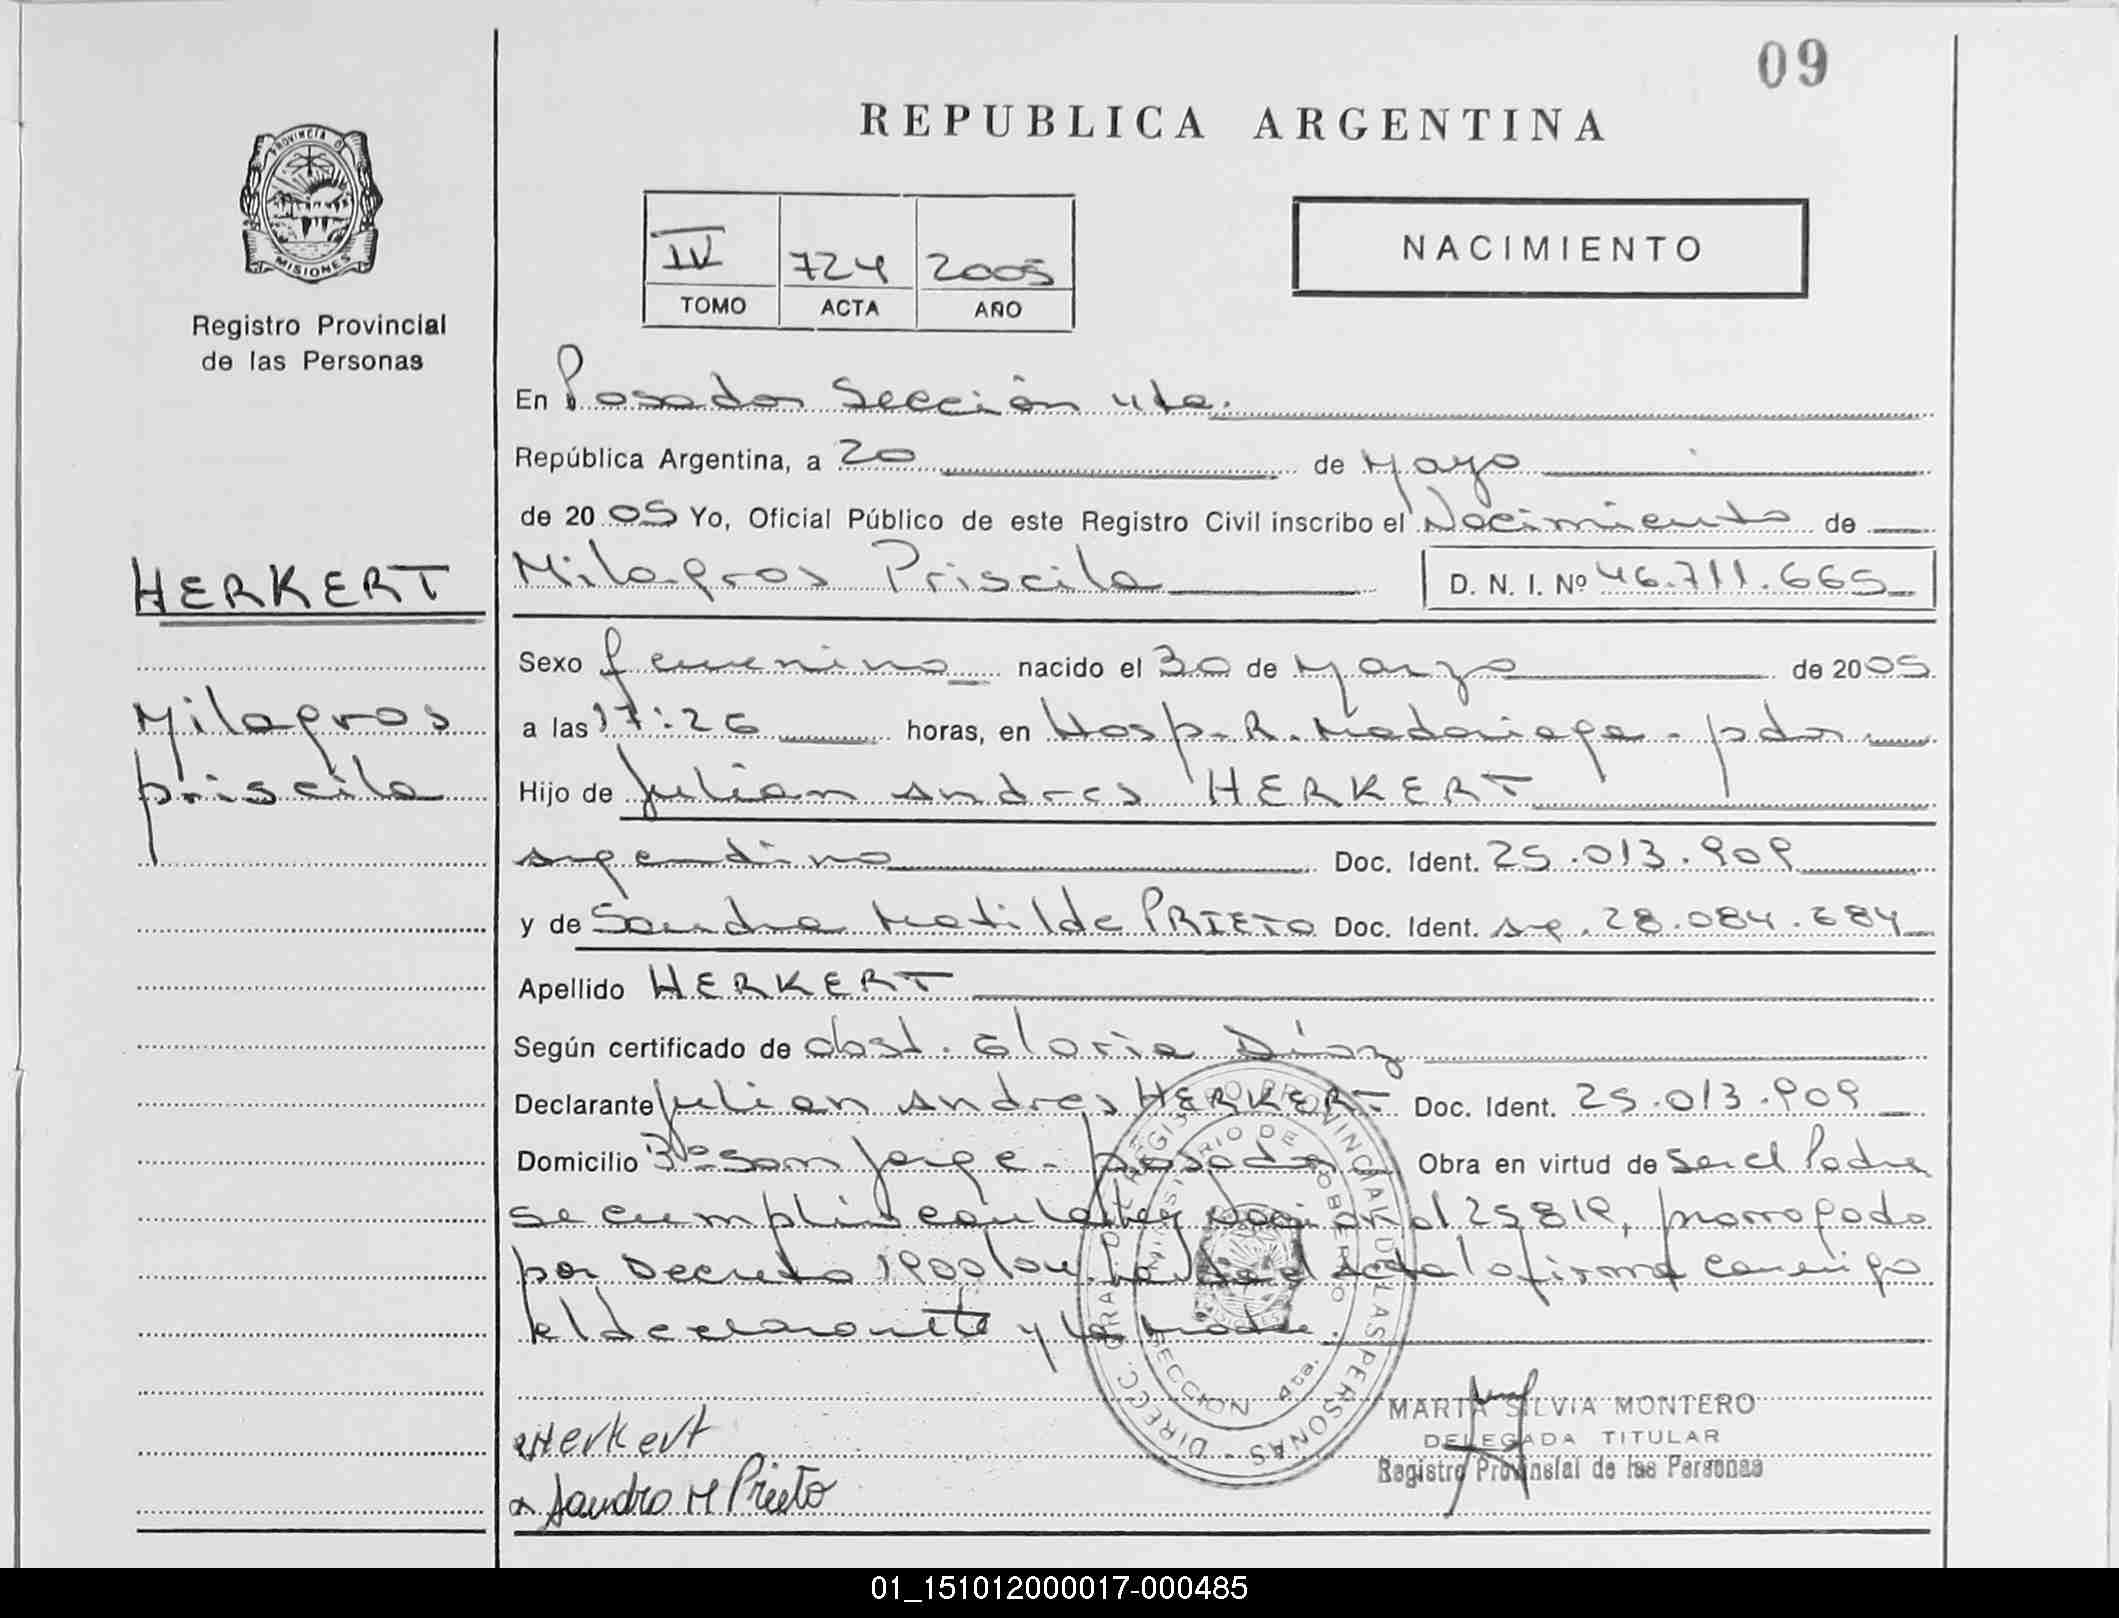 09
REPUBLICA ARGENTINA
PROVINCIA D
MISIONES
Registro Provincial
de las Personas
IV 724 2005
TOMO ACTA AÑO
NACIMIENTO
En Posadas Sección 4ta.
República Argentina, a 20 de Mayo
de 2005 Yo, Oficial Público de este Registro Civil inscribo el Nacimiento de
HERKERT
Milagros Priscila D. N. I. Nº 46.711.665
Sexo femenino nacido el 30 de Marzo de 2005
Milagros
Priscila
a las 17:26 horas, en Hosp. R. Madariaga - pdas
Hijo de Julian Andres HERKERT
argentino Doc. Ident. 25.013.909
y de Sandra Matilde PRIETO Doc. Ident. arg. 28.084.684
Apellido HERKERT
Según certificado de obst. Gloria Díaz
Declarante Julian Andres HERKERT Doc. Ident. 25.013.909
Domicilio Bº San Jorge - Posadas Obra en virtud de ser el Padre
se cumplió con la ley Nacional 25819, prorrogado
por Decreto 1900/04. Leida el acta la firma conmigo
el declarante y la madre.
DIRECC. GRAL. DE REGISTRO PROVINCIAL DE LAS PERSONAS
MINISTERIO DE GOBIERNO
SECCION 4ta.
Herkert
Sandra M Prieto
MARTA SILVIA MONTERO
DELEGADA TITULAR
Registro Provincial de las Personas
01_151012000017-000485